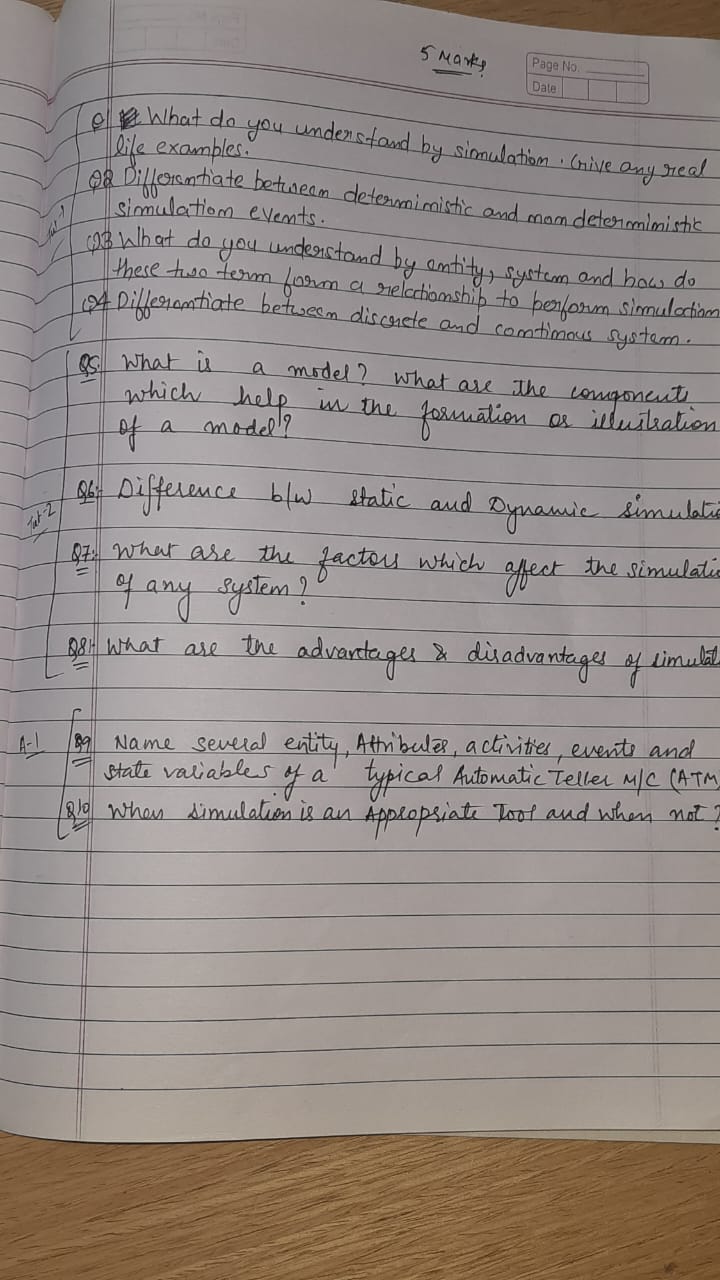 5 Marks
Page No.
Date
Q1 What do you understand by simulation. Give any real
life examples.
Q2 Differentiate between deterministic and nondeterministic
simulation events.
Q3 What do you understand by entity, system and how do
these two term form a relationship to perform simulation
Q4 Differentiate between discrete and continous system.
Q5. What is a model? What are the components
which help in the formation or illustration
of a model?
Tut-2
Q6:- Difference b/w static and Dynamic simulati
Q7:- What are the factors which affect the simulatio
of any system?
Q8:- What are the advantages & disadvantages of simulat
A-1
Q9 Name several entity, Attributes, activities, events and
state variables of a typical Automatic Teller M/C (ATM)
Q10 When simulation is an Appropriate Tool and when not?